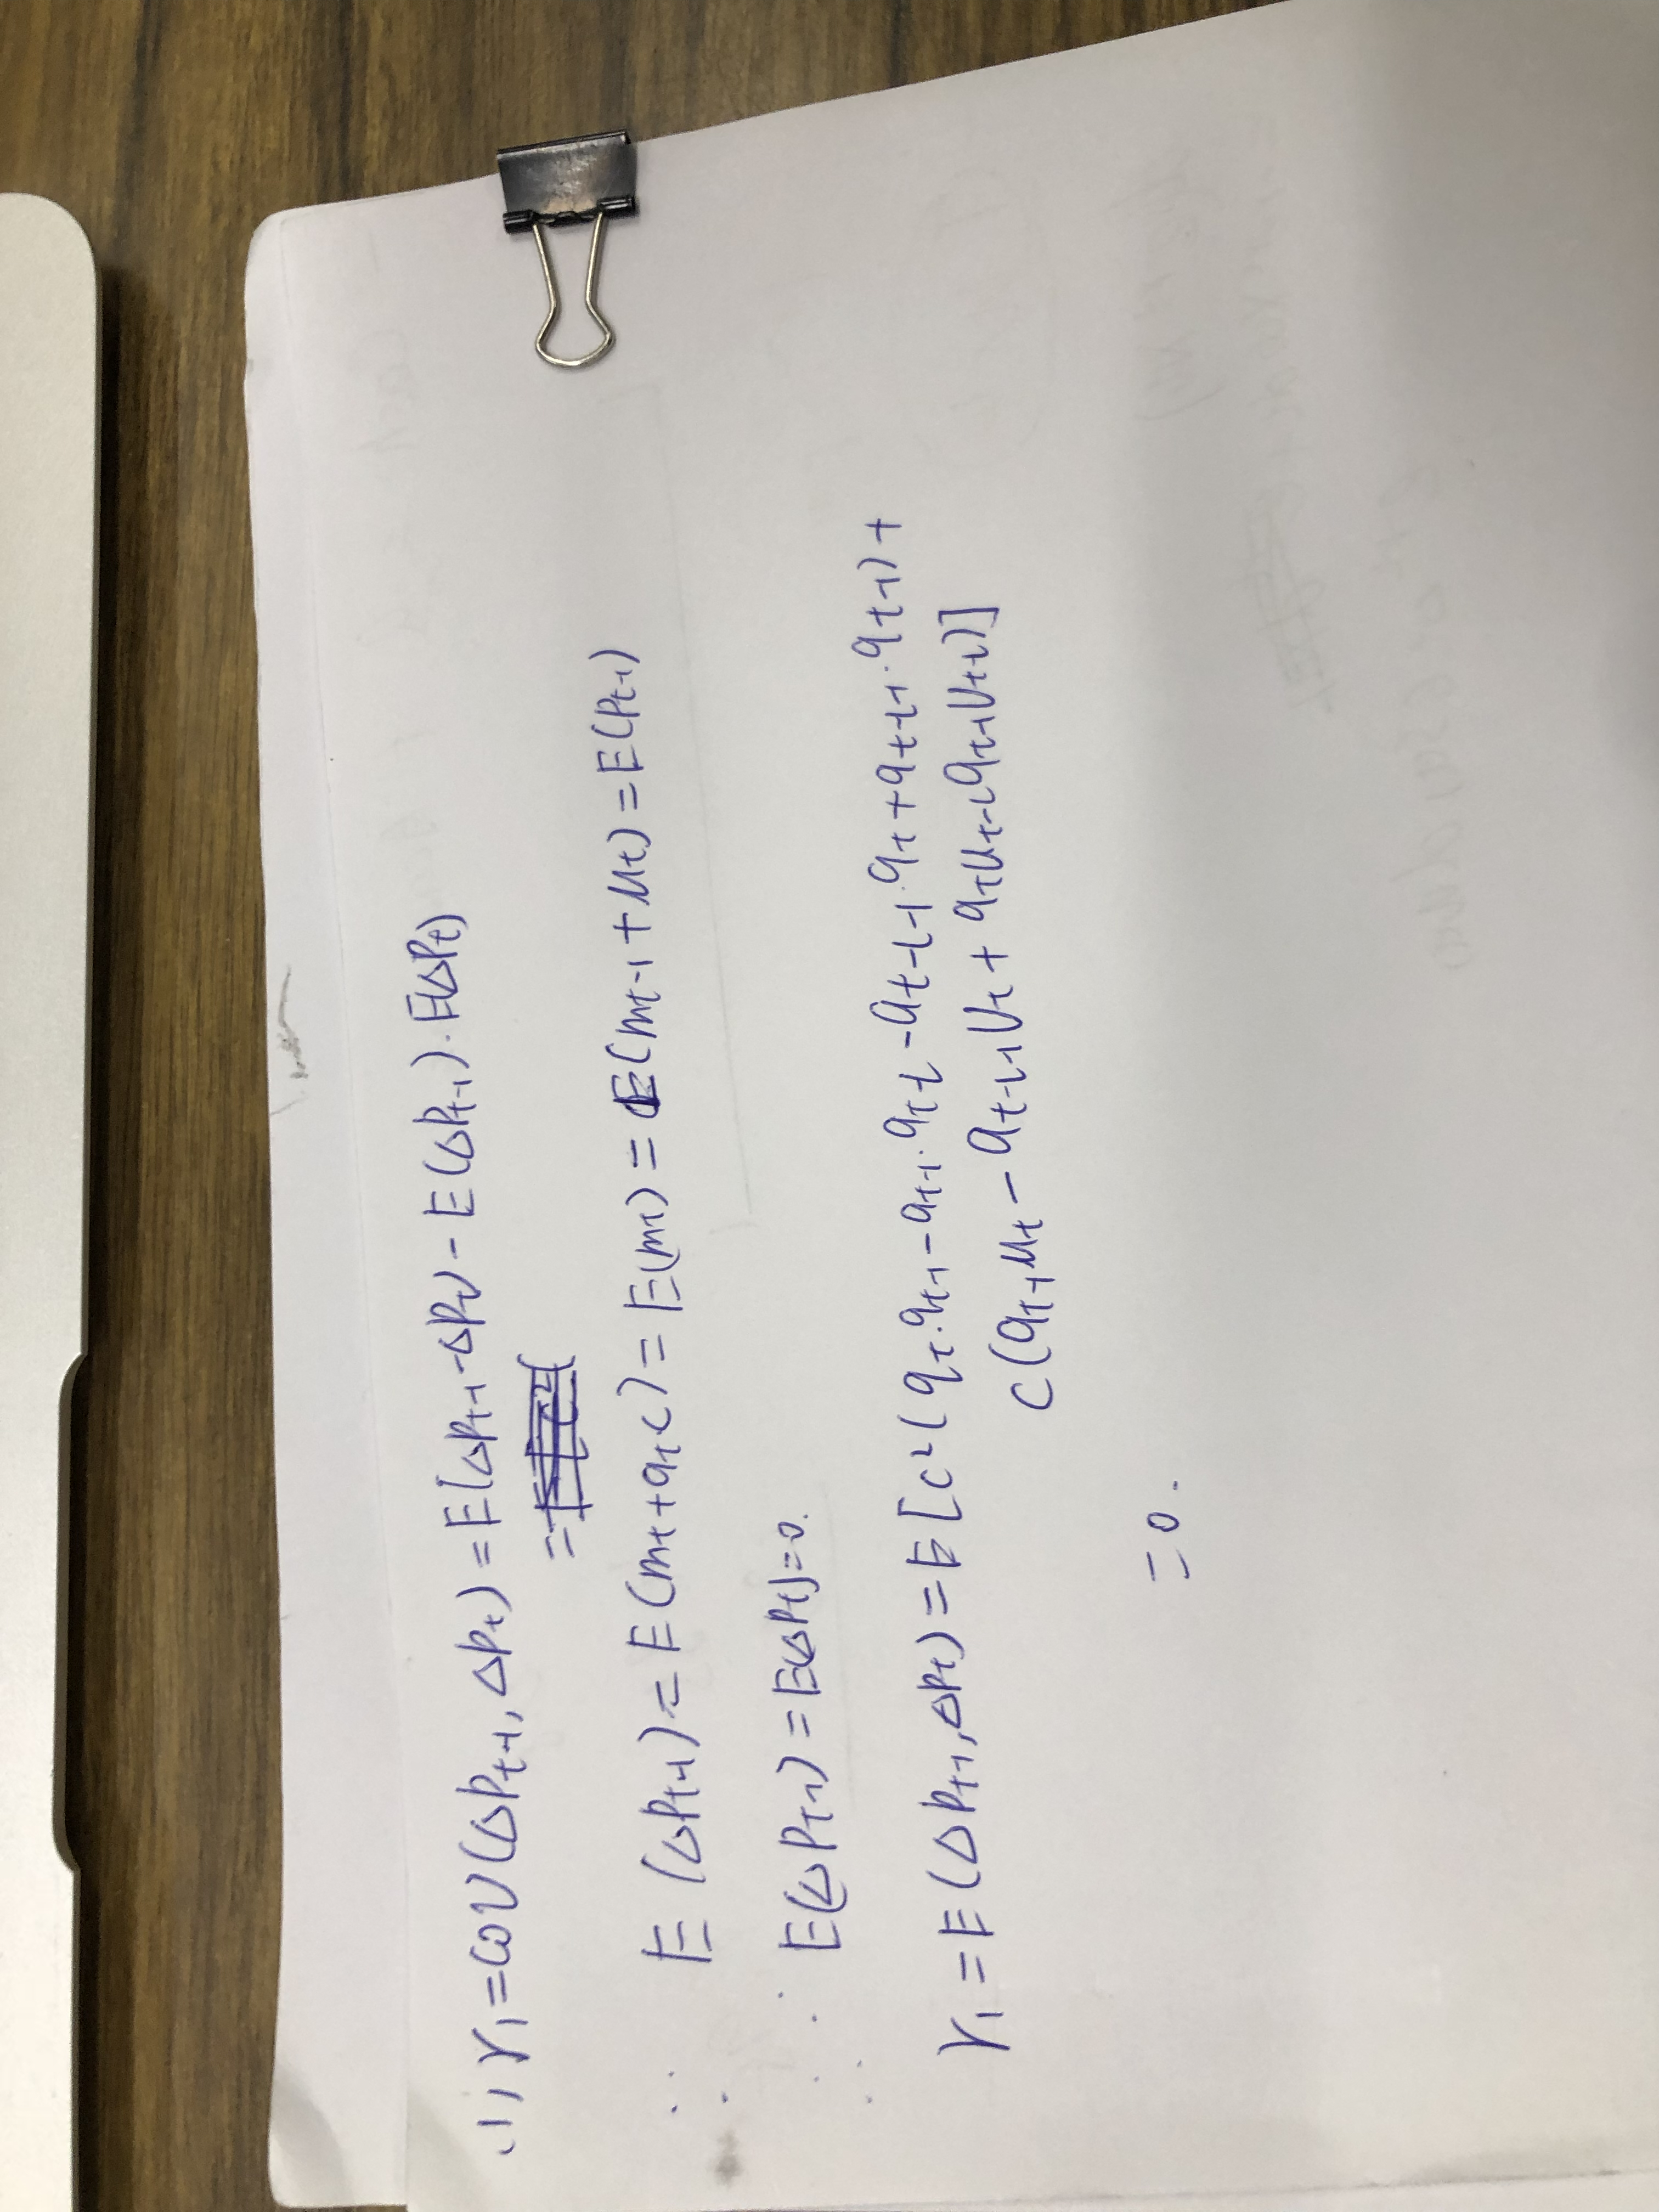 (1) γ₁=cov(ΔPt-1, ΔPt)=E[ΔPt-1·ΔPt]-E(ΔPt-1)·E(ΔPt)
=
∵ E(ΔPt-1)=E(mt+qt·c)=E(mt)=E(mt-1+μt)=E(Pt-1)
∴ E(ΔPt-1)=E(ΔPt)=0.
γ₁=E(ΔPt-1,ΔPt)=E[c²(qt·qt-1-qt-1·qt-1-qt-1-1·qt+qt-1-1·qt-1)+
c(qt-1μt-qt-1-1Ut+qtUt-1qt-1Ut-1)]
=0.